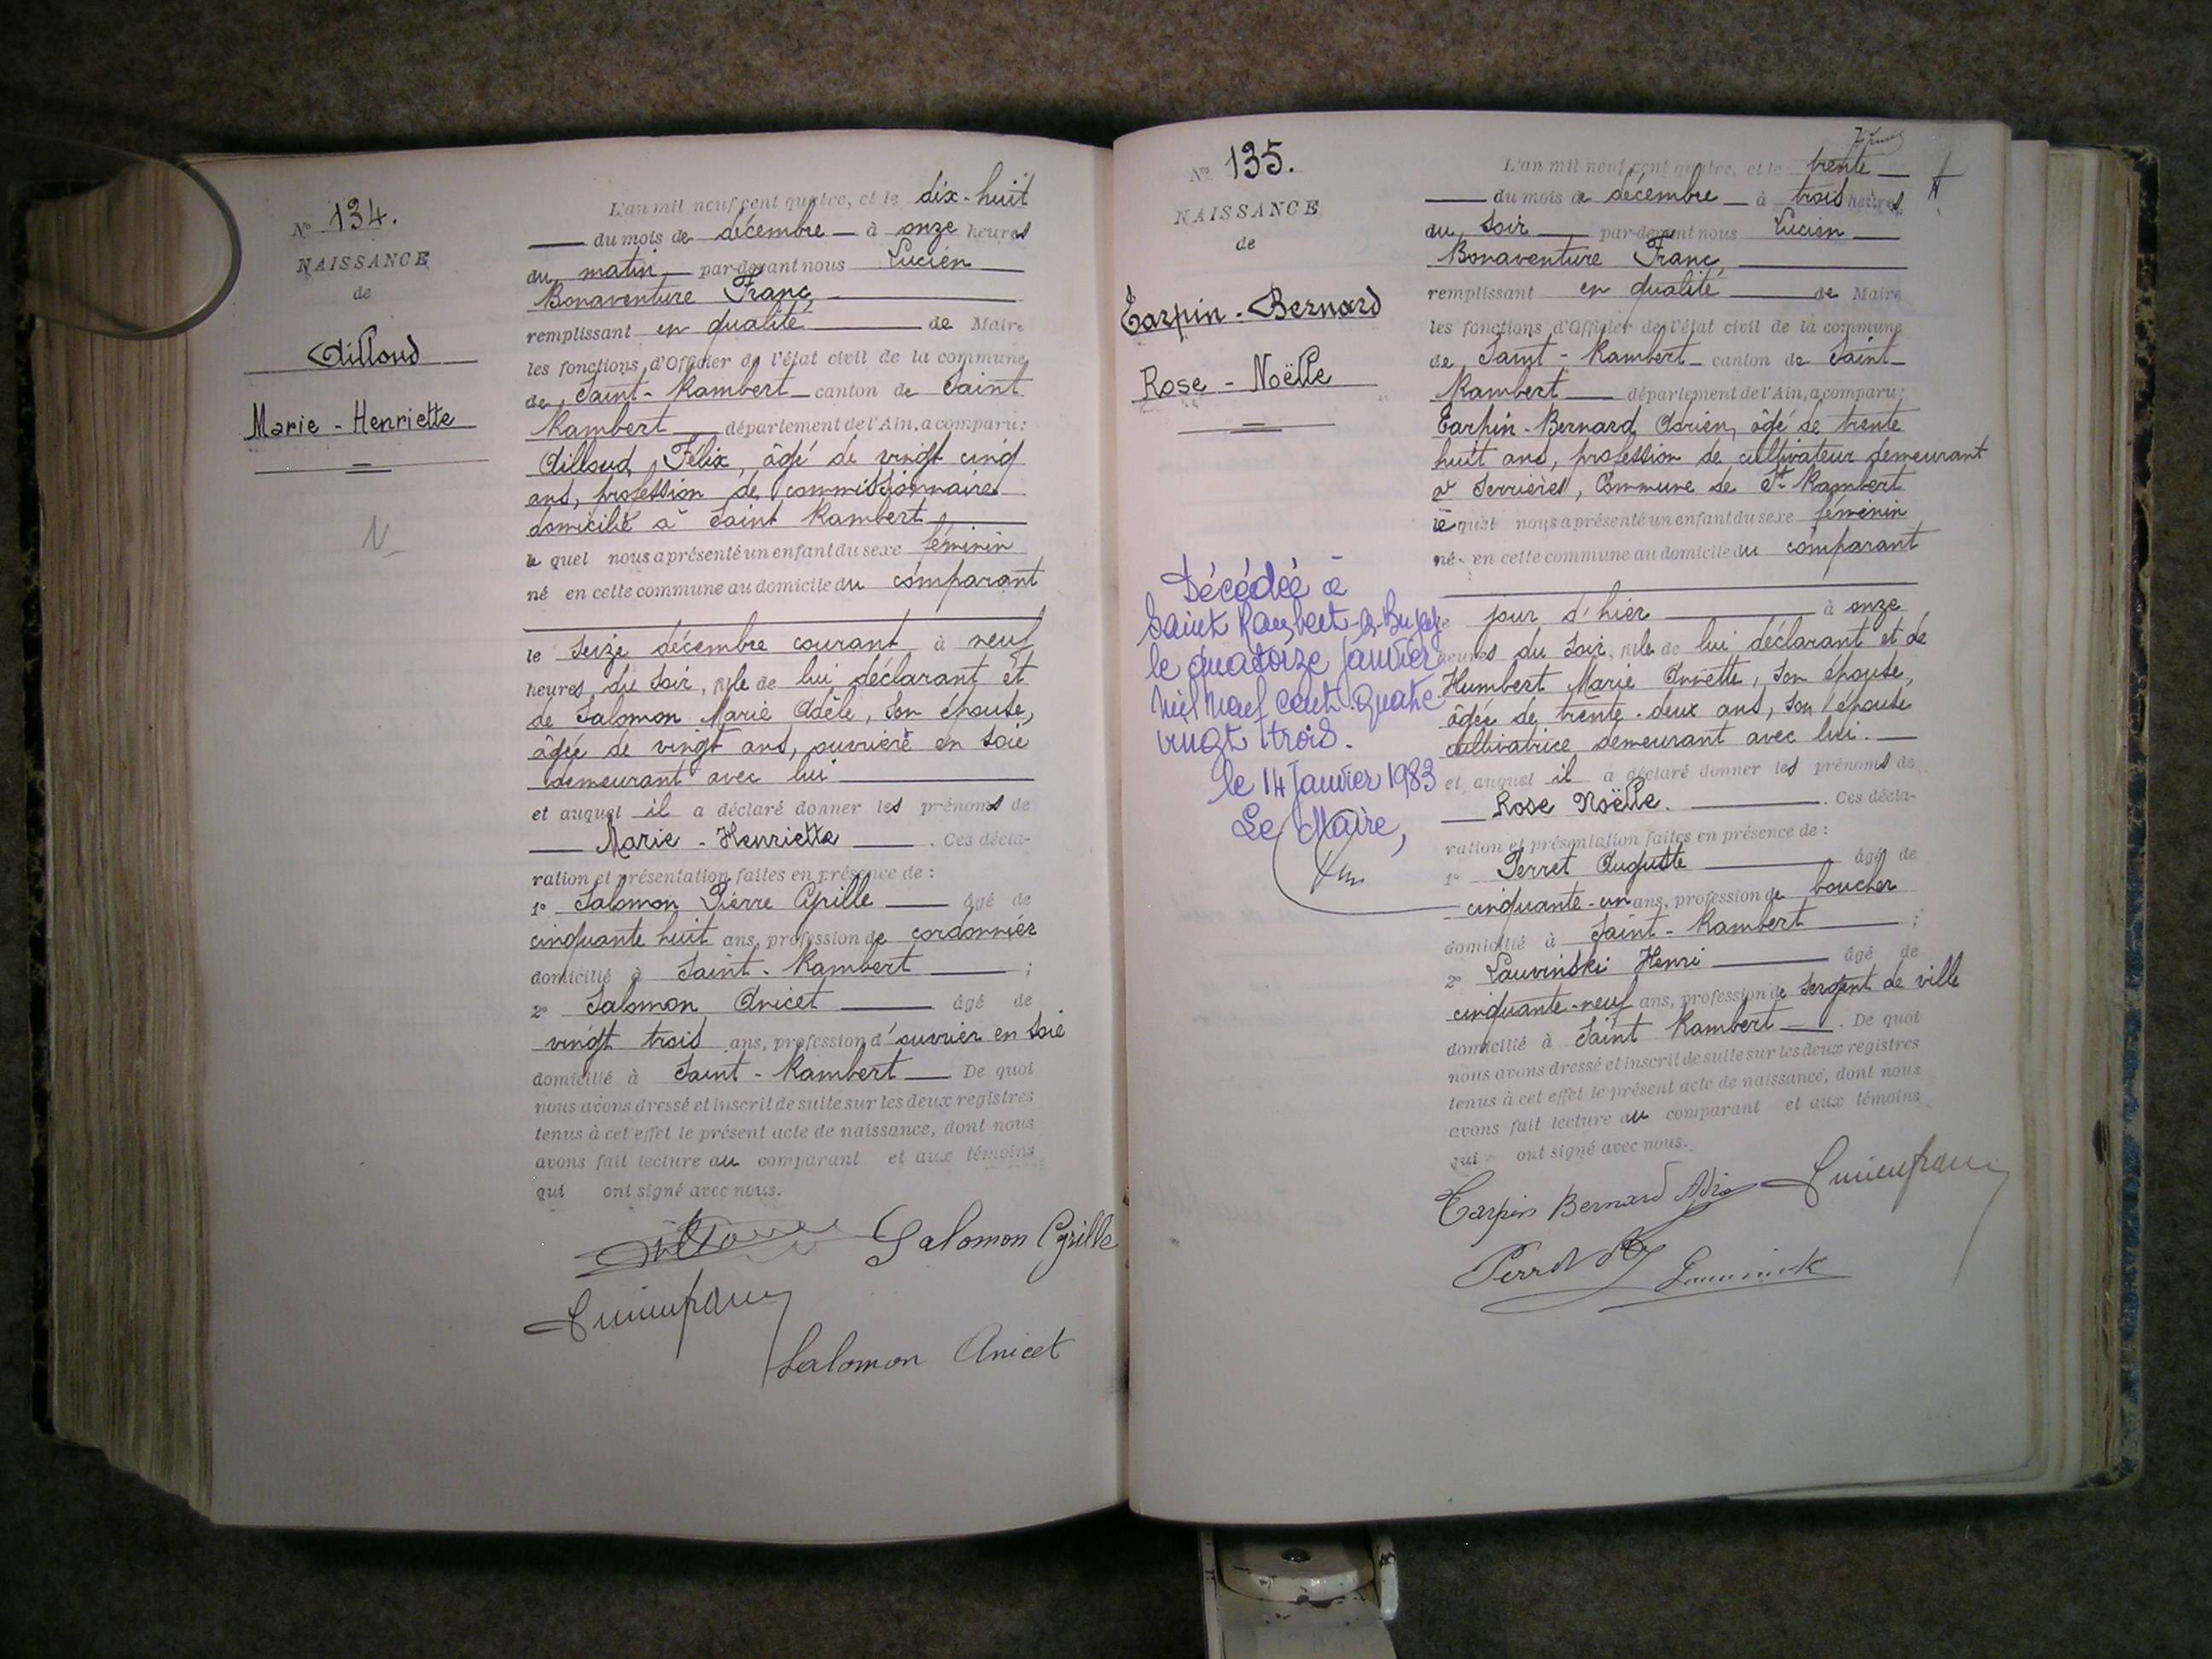 N° 134.
NAISSANCE
de
Dilloud
Marie - Henriette
L'an mil neuf cent quatre, et le dix-huit
du mois de décembre à onze heures
du matin par-devant nous Lucien
Bonaventure Franc,
remplissant en qualité de Maire
les fonctions d'Officier de l'état civil de la commune
de Saint-Rambert canton de Saint
Rambert département de l'Ain, a comparu:
Dilloud Félix, âgé de vingt cinq
ans, profession de commissionnaire
domicilié à Saint Rambert
le quel nous a présenté un enfant du sexe féminin
né en cette commune au domicile du comparant
le seize décembre courant à neuf
heures du soir, née de lui déclarant et
de Salomon Marie Adèle, son épouse,
âgée de vingt ans, ouvrière en soie
demeurant avec lui
et auquel il a déclaré donner les prénoms de
Marie - Henriette . Ces décla-
ration et présentation faites en présence de :
1° Salomon Pierre Cyrille âgé de
cinquante huit ans, profession de cordonnier
domicilié à Saint - Rambert ;
2° Salomon Anicet âgé de
vingt trois ans, profession d'ouvrier en soie
domicilié à Saint - Rambert De quoi
nous avons dressé et inscrit de suite sur les deux registres
tenus à cet effet le présent acte de naissance, dont nous
avons fait lecture au comparant et aux témoins
qui ont signé avec nous.
Salomon Cyrille
Lucien franc
Salomon Anicet
N° 135.
NAISSANCE
de
Tarpin - Bernard
Rose - Noëlle
Décédée à
Saint Rambert-en-Bugey
le quatorze janvier
Mil Neuf Cent Quatre
vingt trois.
le 14 Janvier 1983
Le Maire,
L'an mil neuf cent quatre, et le trente
du mois de décembre à trois heures
du soir par-devant nous Lucien
Bonaventure Franc,
remplissant en qualité de Maire
les fonctions d'Officier de l'état civil de la commune
de Saint - Rambert canton de Saint
Rambert département de l'Ain, a comparu:
Tarpin - Bernard Adrien, âgé de trente
huit ans, profession de cultivateur demeurant
à Serrières, Commune de St Rambert
le quel nous a présenté un enfant du sexe féminin
né en cette commune au domicile du comparant
le jour d'hier à onze
heures du soir, née de lui déclarant et de
Humbert Marie Annette, son épouse,
âgée de trente-deux ans, son épouse
cultivatrice demeurant avec lui.
et auquel il a déclaré donner les prénoms de
Rose Noëlle. . Ces décla-
ration et présentation faites en présence de :
1° Perret Auguste âgé de
cinquante-un ans, profession de boucher
domicilié à Saint - Rambert ;
2° Lauvinski Henri âgé de
cinquante-neuf ans, profession de sergent de ville
domicilié à Saint Rambert . De quoi
nous avons dressé et inscrit de suite sur les deux registres
tenus à cet effet le présent acte de naissance, dont nous
avons fait lecture au comparant et aux témoins
qui ont signé avec nous.
Tarpin Bernard Lucien franc
Perret